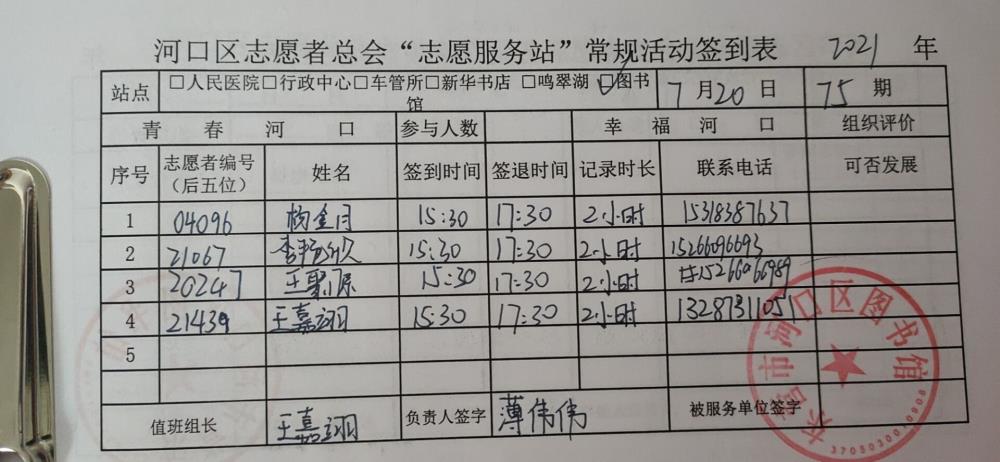 河口区志愿者总会“志愿服务站”常规活动签到表 2021 年
站点 □人民医院□行政中心□车管所□新华书店 □鸣翠湖 ☑图书馆 7月20日 75期
青春河口 参与人数 幸福河口 组织评价
序号 志愿者编号（后五位） 姓名 签到时间 签退时间 记录时长 联系电话 可否发展
1 04096 杨金月 15:30 17:30 2小时 15318387637
2 21067 李 15:30 17:30 2小时 15266096693
3 20247 王 15:30 17:30 2小时 15266066989
4 21439 王嘉翊 15:30 17:30 2小时 13287311051
5
值班组长 王嘉翊 负责人签字 薄伟伟 被服务单位签字
东营市河口区图书馆